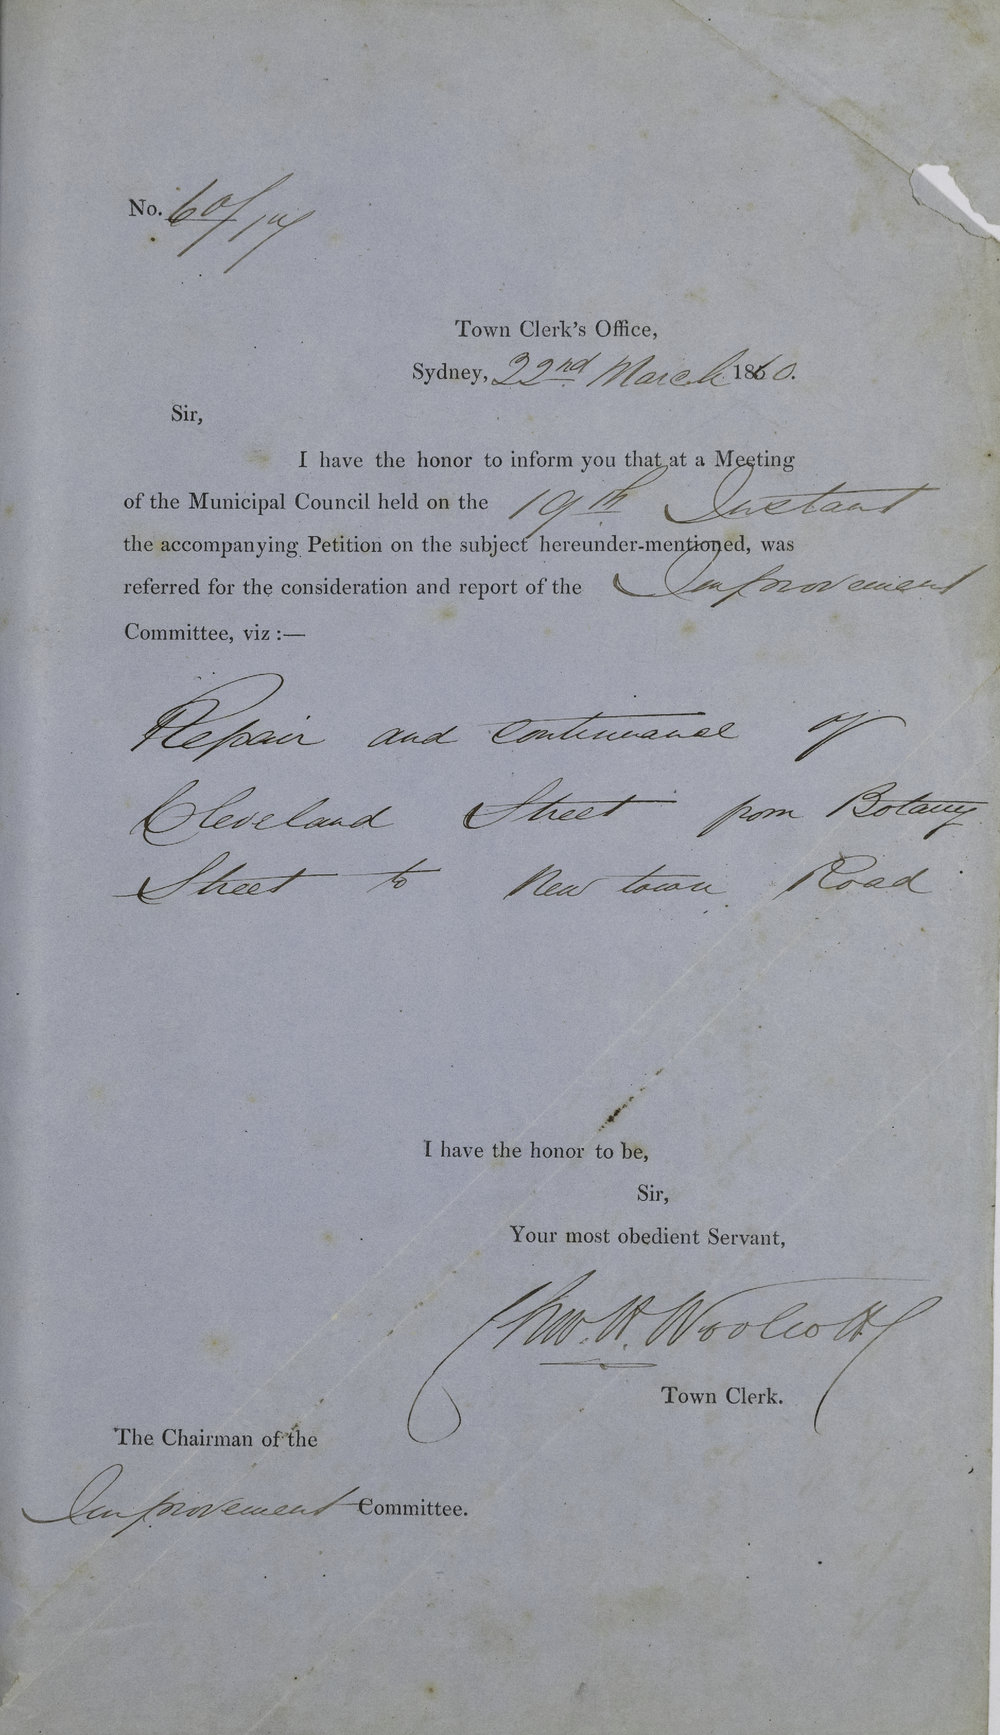 No. 60/
Town Clerk's Office,
Sydney, 22nd March 1860.
Sir,
I have the honor to inform you that at a Meeting
of the Municipal Council held on the 19th Instant
the accompanying Petition on the subject hereunder-mentioned, was
referred for the consideration and report of the Improvement
Committee, viz :—
Repair and continuance of
Cleveland Street from Botany
Street to New town Road
I have the honor to be,
Sir,
Your most obedient Servant,
Chas. H. Woolcott
Town Clerk.
The Chairman of the
Improvement Committee.